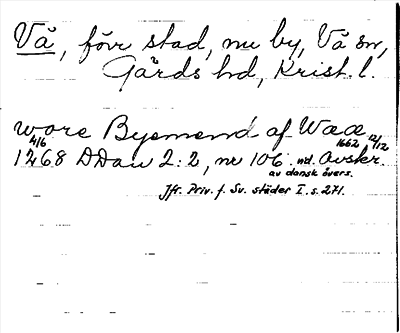 Vä, förr stad, nu by, Vä sn,
Gärds hd, Krist. l.
wore Byemend af Wææ
4/6 1662 12/12
1268 DDan 2:2, nr 106. nd. Avskr.
av dansk övers.
Jfr. Priv. f. Sv. städer I. s. 271.